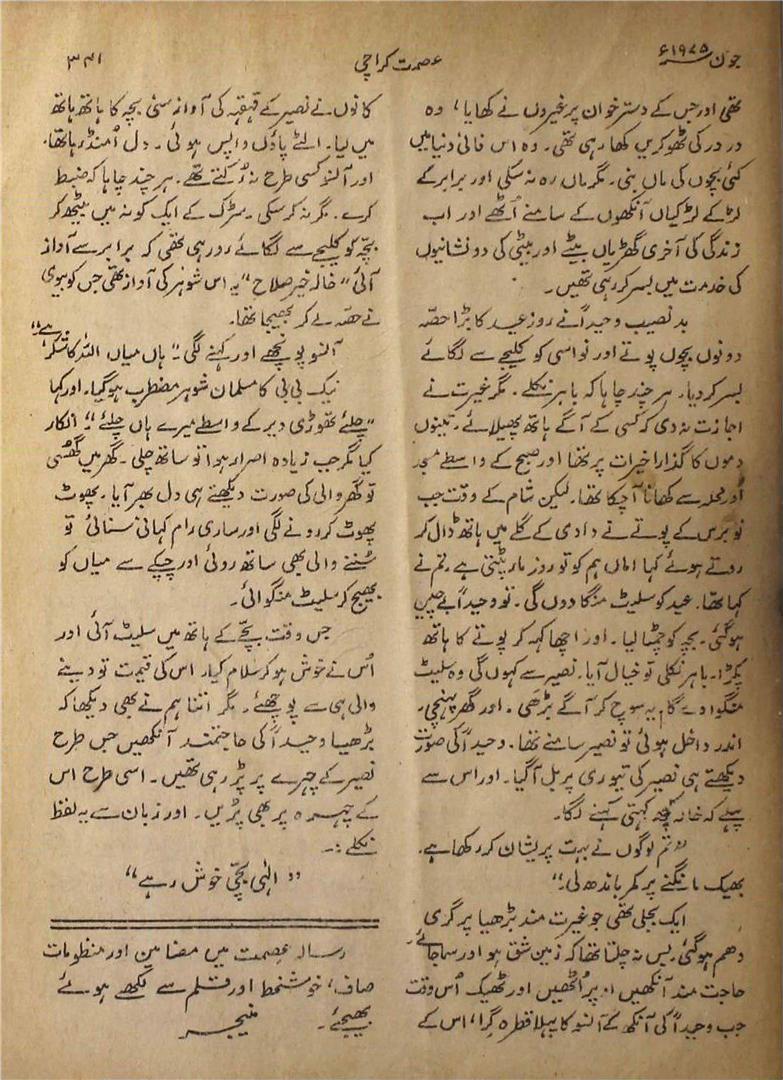 جون ۱۹۷۵ء
عصمت کراچی
۳۴۱
تھی اور جس کے دسترخوان پر غیروں نے کھایا، وہ
در در کی ٹھوکریں کھا رہی تھی۔ وہ اس فانی دنیا میں
کئی بچوں کی ماں بنی۔ مگر ماں رہ نہ سکی اور برابر کے
لڑکے لڑکیاں آنکھوں کے سامنے اُٹھے اور اب
زندگی کی آخری گھڑیاں بیٹے اور بیٹی کی دو نشانیوں
کی خدمت میں بسر کر رہی تھیں۔
بد نصیب وحیداً نے روز عید کا بڑا حصّہ
دونوں بچوں پوتے اور نواسی کو کلیجے سے لگائے
بسر کر دیا۔ ہر چند چاہا کہ باہر نکلے۔ مگر غیرت نے
اجازت نہ دی کہ کسی کے آگے ہاتھ پھیلائے۔ تینوں
دموں کا گذارا خیرات پر تھا اور صبح کے واسطے مسجد
اور محلہ سے کھانا آ چکا تھا۔ لیکن شام کے وقت جب
نو برس کے پوتے نے دادی کے گلے میں ہاتھ ڈال کر
روتے ہوئے کہا اماں ہم کو تو روز مار پٹتی ہے۔ تم نے
کہا تھا۔ عید کو سلیٹ منگا دوں گی۔ تو وحیداً بے چین
ہو گئی۔ بچہ کو چمٹا لیا۔ اور اچھا کہہ کر پوتے کا ہاتھ
پکڑا۔ باہر نکلی تو خیال آیا۔ نصیر سے کہوں گی وہ سلیٹ
منگوا دے گا۔ یہ سوچ کر آگے بڑھی۔ اور گھر پہنچی۔
اندر داخل ہوئی تو نصیر سامنے تھا۔ وحیداً کی صورت
دیکھتے ہی نصیر کی تیوری پر بل آ گیا۔ اور اس سے
پہلے کہ خالہ کچھ کہتی کہنے لگا۔
"تم لوگوں نے بہت پریشان کر رکھا ہے۔
بھیک مانگنے پر کمر باندھ لی۔"
ایک بجلی تھی جو غیرت مند بڑھیا پر گری
دھم ہو گئی۔ بس نہ چلتا تھا کہ زمین شق ہو اور سما جائے۔
حاجت مند آنکھیں اوپر اُٹھیں اور ٹھیک اُس وقت
جب وحیداً کی آنکھ کے آنسو کا پہلا قطرہ گرا، اس کے
کانوں نے نصیر کے قہقہہ کی آواز سنی بچہ کا ہاتھ ہاتھ
میں لیا۔ الٹے پاؤں واپس ہوئی۔ دل اُمنڈ رہا تھا۔
اور آنسو کسی طرح نہ رُکتے تھے۔ ہر چند چاہا کہ ضبط
کرے۔ مگر نہ کر سکی۔ سڑک کے ایک کونہ میں بیٹھ کر
بچّہ کو کلیجے سے لگائے رو رہی تھی کہ برابر سے آواز
آئی "خالہ خیر صلاح" یہ اس شوہر کی آواز تھی جس کو بیوی
نے حصّہ لے کر بھیجا تھا۔
آنسو پونچھے اور کہنے لگی "ہاں میاں اللہ کا شکر ہے"
نیک بی بی کا مسلمان شوہر مضطرب ہو گیا۔ اور کہا
"چلئے تھوڑی دیر کے واسطے میرے ہاں چلئے" انکار
کیا مگر جب زیادہ اصرار ہوا تو ساتھ چلی۔ گھر میں گھسی
تو گھر والی کی صورت دیکھتے ہی دل بھر آیا۔ پھوٹ
پھوٹ کر رونے لگی اور ساری رام کہانی سنائی تو
سُننے والی بھی ساتھ روئی اور چپکے سے میاں کو
بھیج کر سلیٹ منگوائی۔
جس وقت بچّے کے ہاتھ میں سلیٹ آئی اور
اُس نے خوش ہو کر سلام کیا، اس کی قیمت تو دینے
والی ہی سے پوچھئے۔ مگر اتنا ہم نے بھی دیکھا کہ
بڑھیا وحیداً کی حاجتمند آنکھیں جس طرح
نصیر کے چہرے پر پڑ رہی تھیں۔ اسی طرح اس
کے چہرہ پر بھی پڑیں۔ اور زبان سے یہ لفظ
نکلے:۔
"الٰہی بچّی خوش رہے"
رسالہ عصمت میں مضامین اور منظومات
صاف، خوشخط اور قلم سے لکھے ہوئے
بھیجئے۔
منیجر